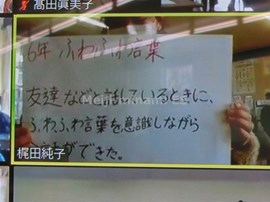 高田眞美子
6年 ふわふわ言葉
友達などと話しているときに、
ふわふわ言葉を意識しながら
ができた。
梶田純子